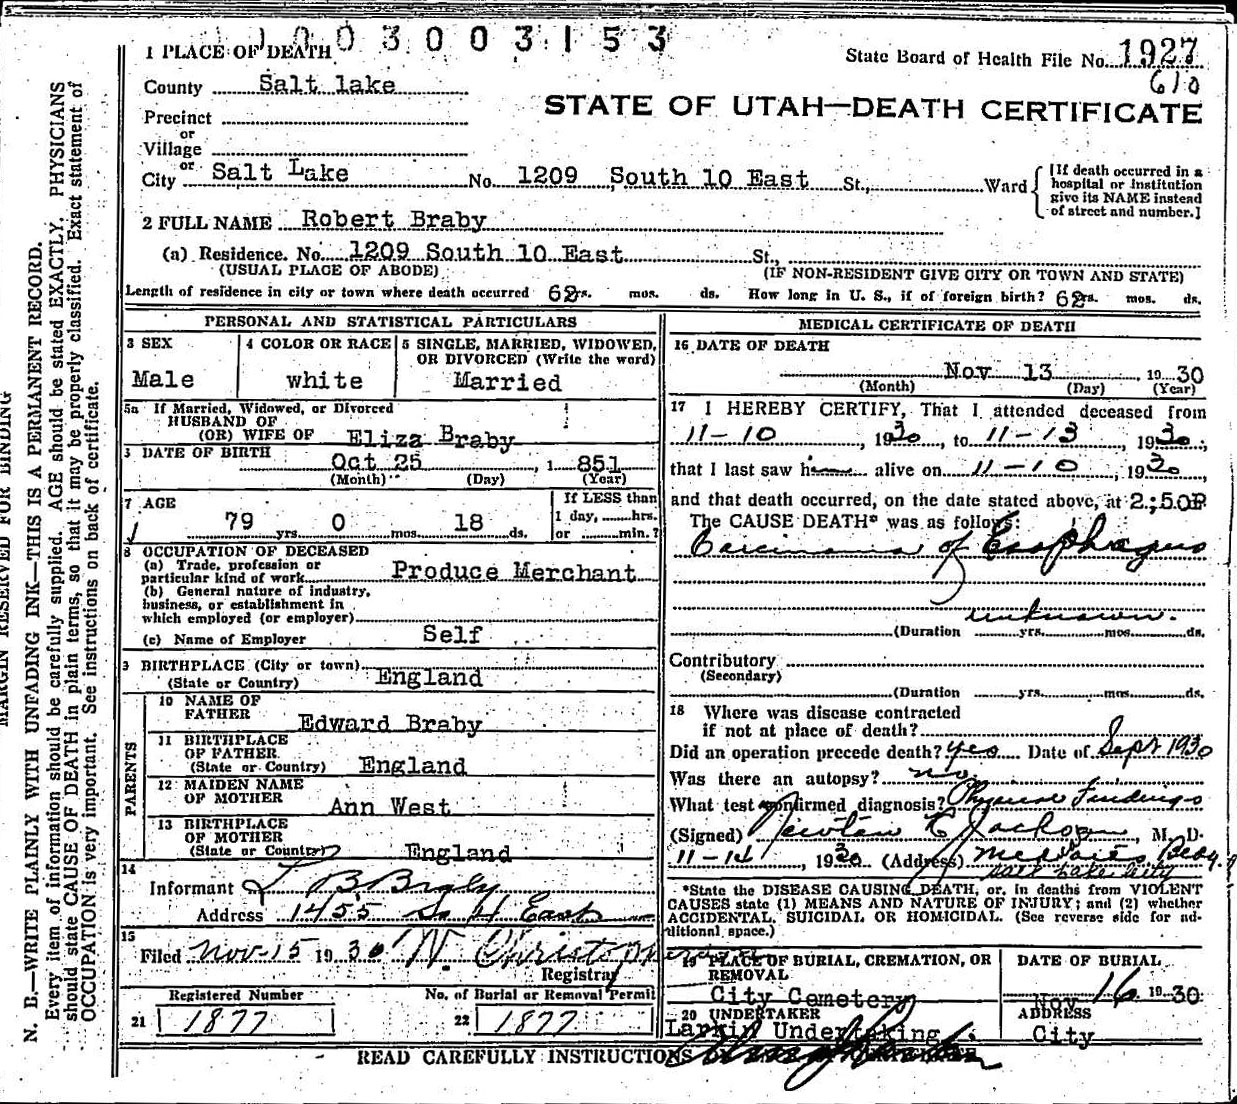 1003003153
1 PLACE OF DEATH
State Board of Health File No. 1927
610
County Salt lake
STATE OF UTAH—DEATH CERTIFICATE
Precinct
or
Village
or
City Salt Lake No. 1209 South 10 East St., Ward
[If death occurred in a hospital or institution give its NAME instead of street and number.]
2 FULL NAME Robert Braby
(a) Residence. No. 1209 South 10 East St.,
(USUAL PLACE OF ABODE) (IF NON-RESIDENT GIVE CITY OR TOWN AND STATE)
Length of residence in city or town where death occurred 62 yrs. mos. ds. How long in U. S., if of foreign birth? 62 yrs. mos. ds.
PERSONAL AND STATISTICAL PARTICULARS
3 SEX
Male
4 COLOR OR RACE
white
5 SINGLE, MARRIED, WIDOWED,
OR DIVORCED (Write the word)
Married
5a If Married, Widowed, or Divorced
HUSBAND OF
(OR) WIFE OF Eliza Braby
DATE OF BIRTH
Oct 25, 1851
(Month) (Day) (Year)
7 AGE
79 yrs. 0 mos. 18 ds.
If LESS than
1 day, hrs.
or min.?
8 OCCUPATION OF DECEASED
(a) Trade, profession or
particular kind of work Produce Merchant
(b) General nature of industry,
business, or establishment in
which employed (or employer)
(c) Name of Employer Self
9 BIRTHPLACE (City or town)
(State or Country) England
PARENTS
10 NAME OF
FATHER Edward Braby
11 BIRTHPLACE
OF FATHER
(State or Country) England
12 MAIDEN NAME
OF MOTHER Ann West
13 BIRTHPLACE
OF MOTHER
(State or Country) England
14
Informant L B Braby
Address 1455 So 4 East
15
Filed Nov 15 1930 N. Christopherson
Registrar
Registered Number
21 1877
No. of Burial or Removal Permit
22 1877
MEDICAL CERTIFICATE OF DEATH
16 DATE OF DEATH
Nov 13, 1930
(Month) (Day) (Year)
17 I HEREBY CERTIFY, That I attended deceased from
11-10, 1930, to 11-13, 1930,
that I last saw him alive on 11-10, 1930,
and that death occurred, on the date stated above, at 2:50P
The CAUSE DEATH* was as follows:
Carcinoma of Esophagus
unknown.
(Duration yrs. mos. ds.
Contributory
(Secondary)
(Duration yrs. mos. ds.
18 Where was disease contracted
if not at place of death?
Did an operation precede death? yes Date of Sept 1930
Was there an autopsy? no
What test confirmed diagnosis? Physical Findings
(Signed) Newton E Jackson, M. D.
11-14, 1930 (Address) Med Arts Bldg.
Salt Lake City
*State the DISEASE CAUSING DEATH, or, in deaths from VIOLENT
CAUSES state (1) MEANS AND NATURE OF INJURY; and (2) whether
ACCIDENTAL, SUICIDAL OR HOMICIDAL. (See reverse side for ad-
ditional space.)
19 PLACE OF BURIAL, CREMATION, OR
REMOVAL
City Cemetery
DATE OF BURIAL
Nov 16 1930
20 UNDERTAKER
Larkin Undertaking
ADDRESS
City
READ CAREFULLY INSTRUCTIONS
MARGIN RESERVED FOR BINDING
N. B.—WRITE PLAINLY WITH UNFADING INK—THIS IS A PERMANENT RECORD.
Every item of information should be carefully supplied. AGE should be stated EXACTLY. PHYSICIANS
should state CAUSE OF DEATH in plain terms, so that it may be properly classified. Exact statement of
OCCUPATION is very important. See instructions on back of certificate.